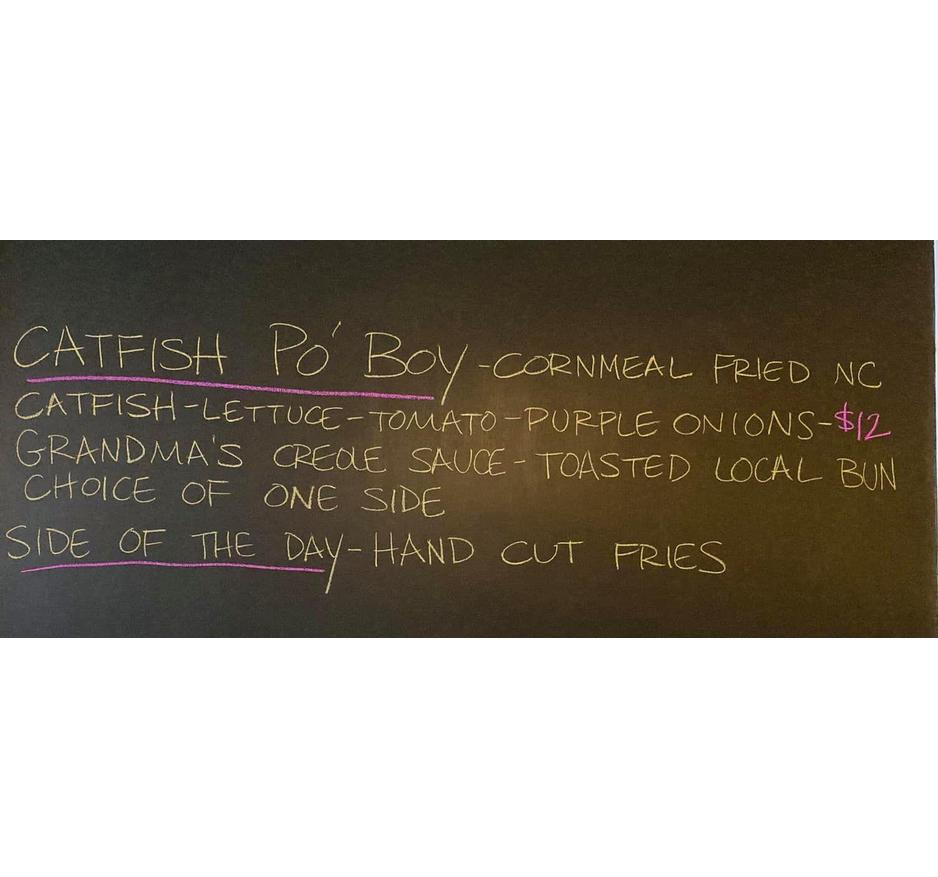 CATFISH PO' BOY - CORNMEAL FRIED NC
CATFISH - LETTUCE - TOMATO - PURPLE ONIONS - $12
GRANDMA'S CREOLE SAUCE - TOASTED LOCAL BUN
CHOICE OF ONE SIDE
SIDE OF THE DAY - HAND CUT FRIES